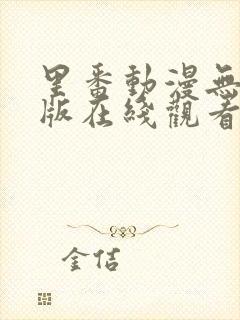 里番動漫無
版在綫觀看
金佶